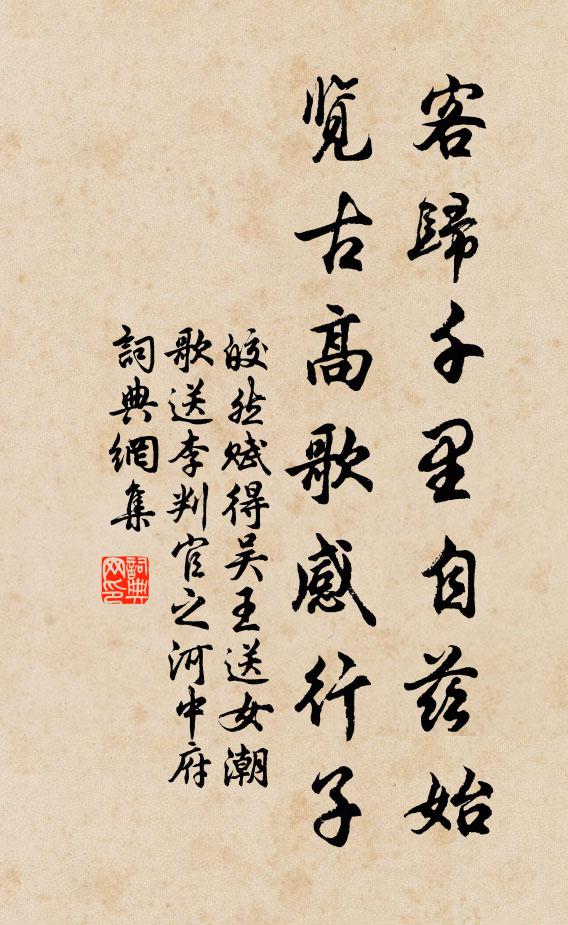 客歸千里自茲始
覽古高歌感行子
皎然賦得吳王送女潮
歌送李判官之河中府
詞典網集
詞典
网印